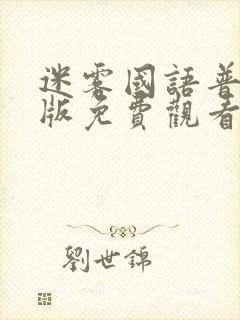 迷雾國語普
版免費觀看
劉世錦